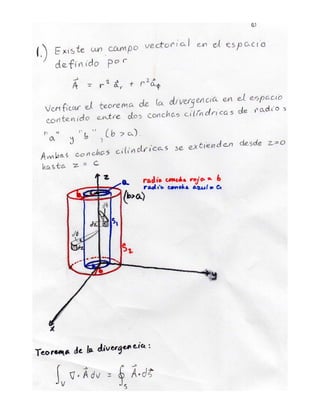 1.) Existe un campo vectorial en el espacio
definido por
A = r² âr + r² âφ
Verificar el teorema de la divergencia en el espacio
contenido entre dos conchas cilíndricas de radios
"a" y "b", (b > a).
Ambas conchas cilíndricas se extienden desde z=0
hasta z = c
z
a
radio concha roja = b
(b>a)
radio concha azul = a
S1
S2
b
y
x
Teorema de la divergencia:
∫v ∇·A dv = ∮s A·ds